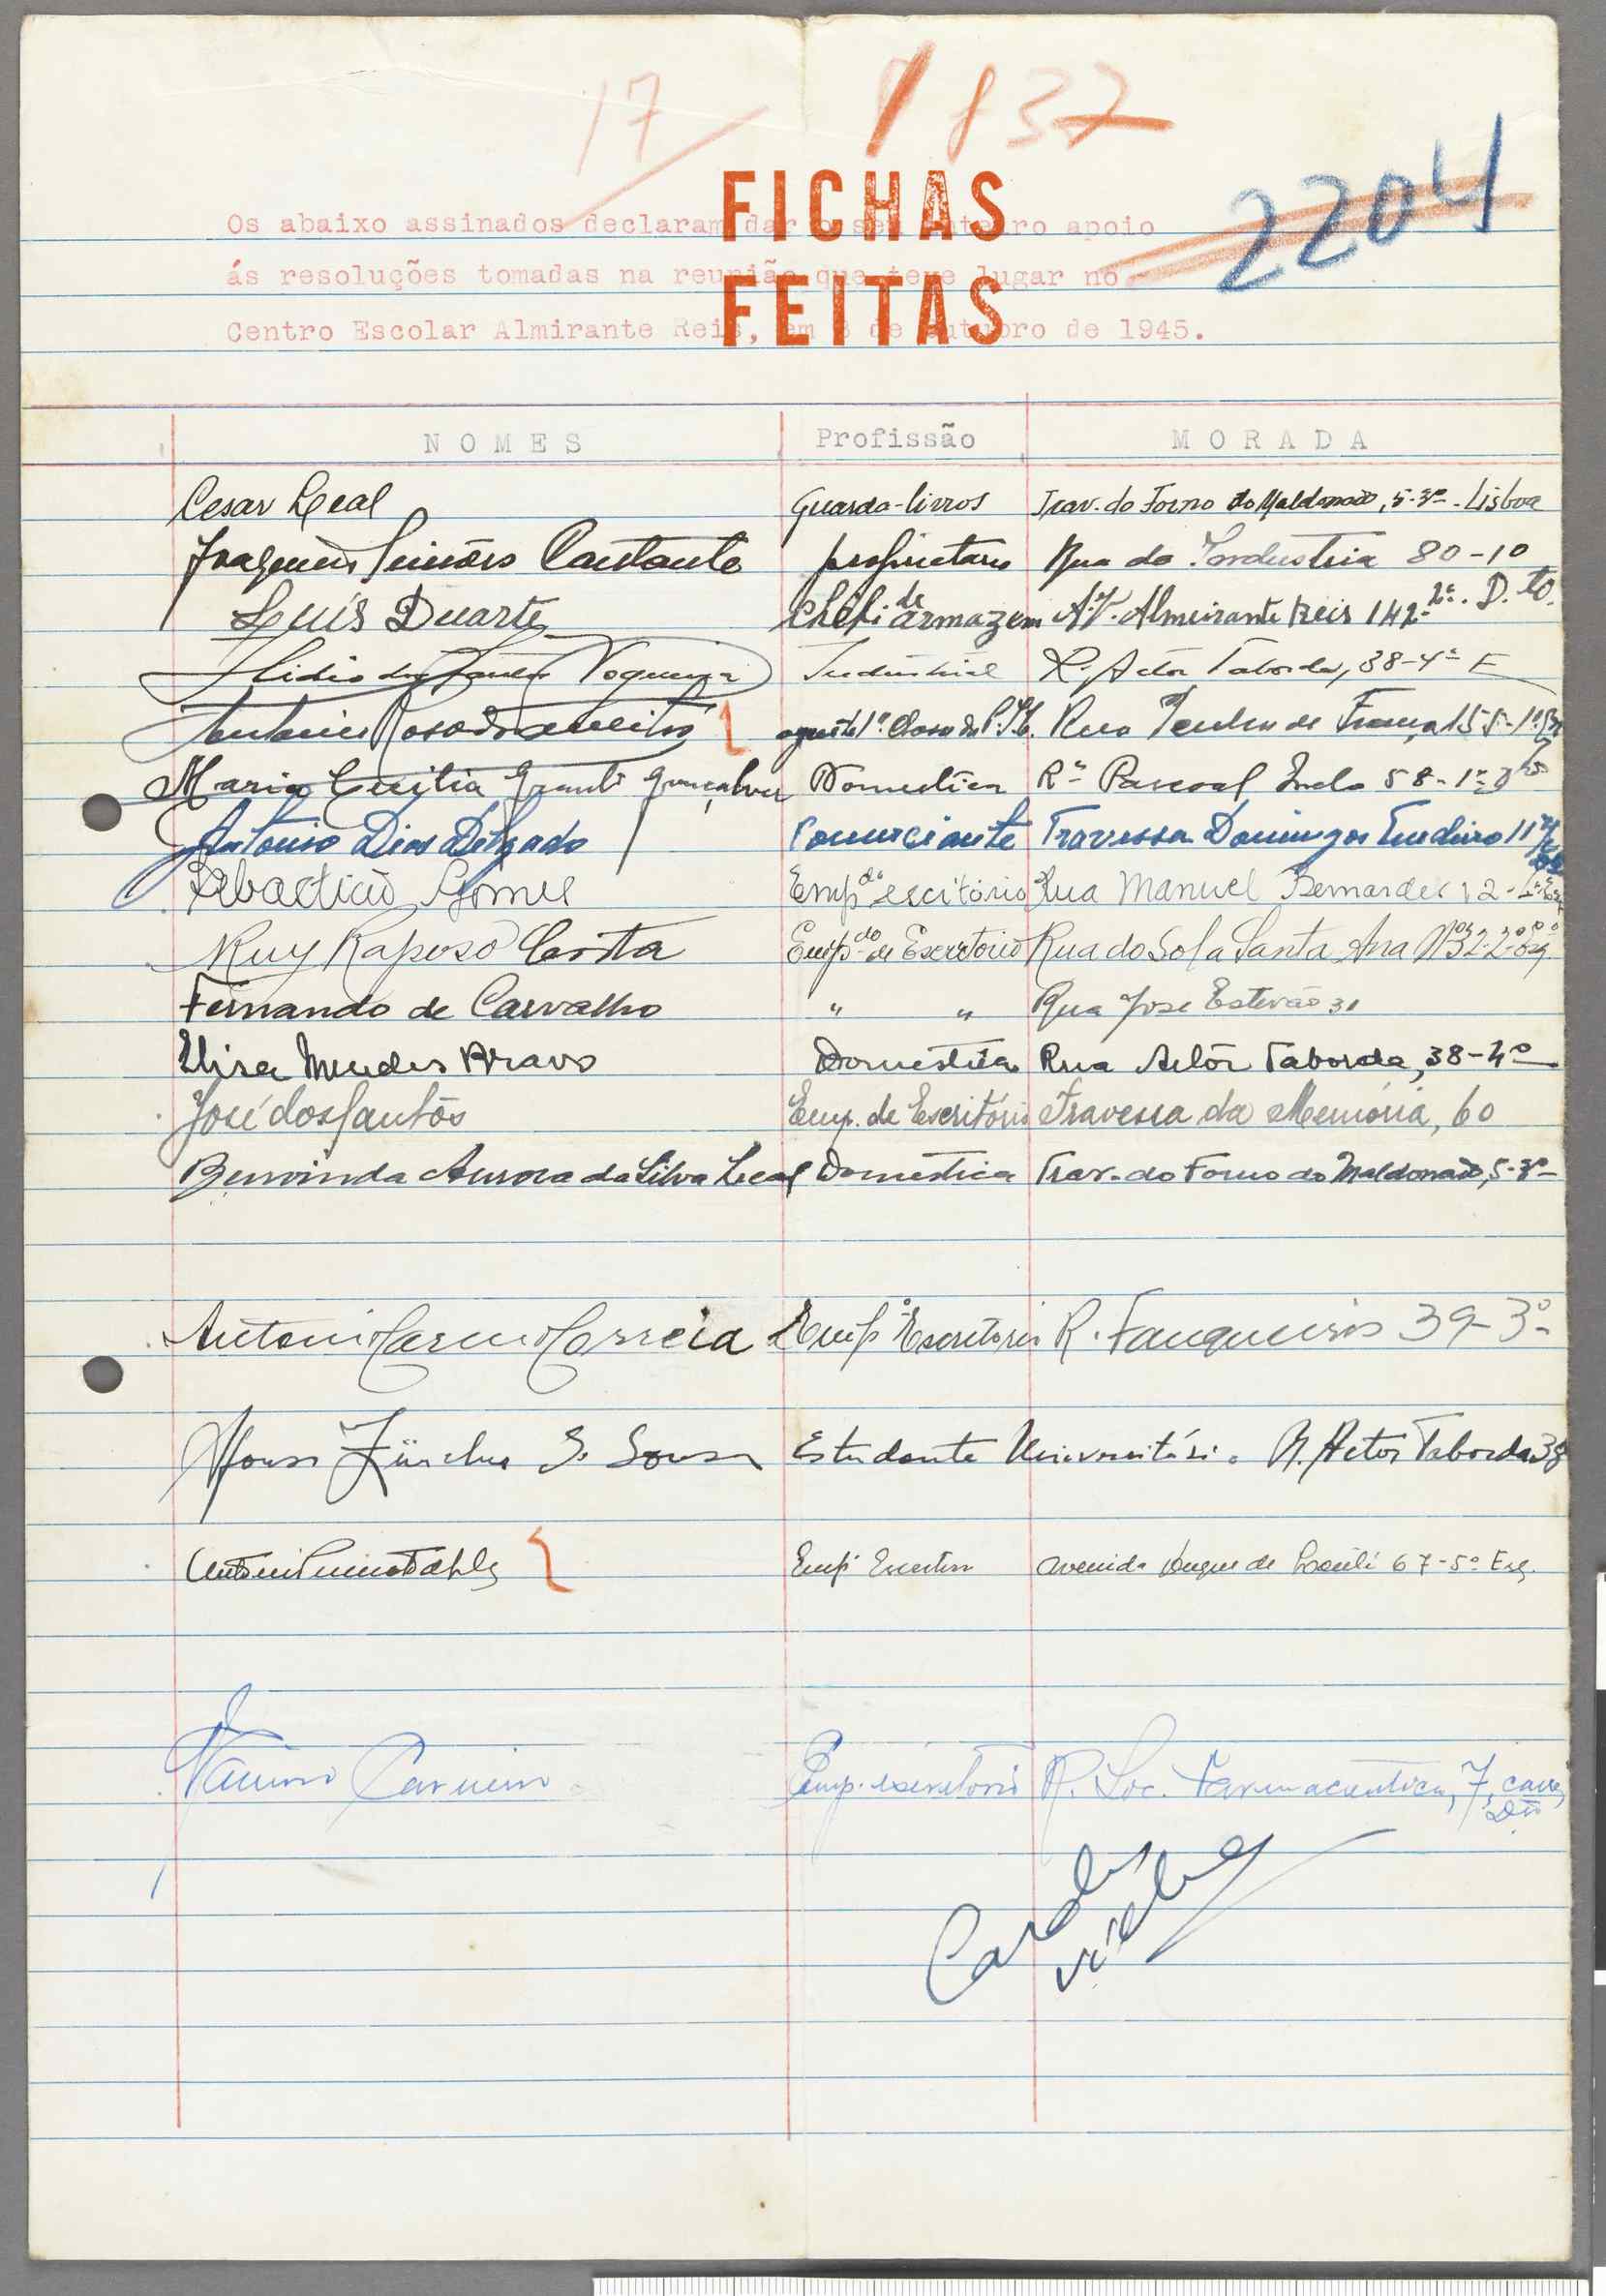 17
1837
2204
FICHAS
FEITAS
Os abaixo assinados declaram dar o seu inteiro apoio
ás resoluções tomadas na reunião que teve lugar no
Centro Escolar Almirante Reis, em 8 de outubro de 1945.
NOMES Profissão MORADA
Cesar Leal Guarda-livros Trav. do Forno do Maldonado, 5-3º - Lisboa
Joaquim Simões Cantante proprietario Rua da Industria 80-1º
Luís Duarte Chefe de armazem Av. Almeirante Reis 142-2º. D.to.
Ilidio dos Santos Nogueira Industrial R. Actor Taborda, 38-4º E
Antonio agente 1ª Classe da P. Rua Penha de França 155-1º
Maria Cecilia Gonçalves Domestica Rª Pascoal Melo 58-1º Dto
Antonio Dias Delgado Comerciante Travessa Domingos Tendeiro 11
Sebastião Gomes Empdo escritório Rua Manuel Bernardes 12
Ruy Raposo Costa Empdo de Escritorio Rua do Sol a Santa Ana
Fernando de Carvalho " " Rua Jose Estevão 31
Elisa Mendes Bravo Domestica Rua Actôr Taborda, 38-4º
José dos Santos Emp. de Escritório Travessa da Memória, 60
Benvinda Aurora da Silva Leal Domestica Trav. do Forno do Maldonado, 5-3º
Antonio Carmo Correia Empº Escritorio R. Fanqueiros 39-3º
Afonso S. Sousa Estudante Universitário R. Actor Taborda 38
Empº Escritorio Avenida Duque de Loulé 67-5º Esq.
Carneiro Emp. escritorio R. Soc. Farmaceutica, 7, cave, Dto